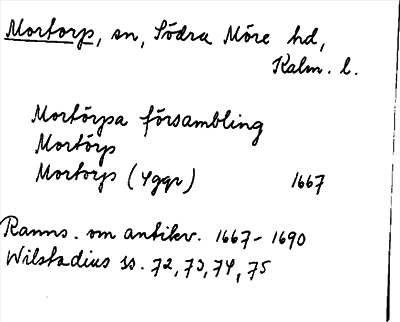 Mortorp, sn, Södra Möre hd,
Kalm. l.
Mortörpa försambling
Mortörp
Mortorp (4ggr) 1667
Ranns. om antikv. 1667-1690
Wilstadius ss. 72, 73, 74, 75